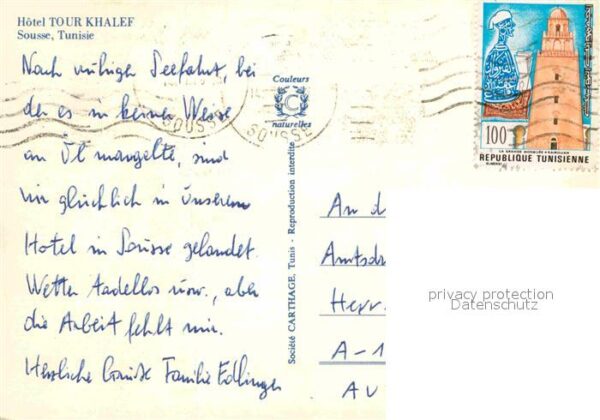 Hôtel TOUR KHALEF
Sousse, Tunisie
Nach ruhiger Seefahrt, bei
der es in keiner Weise
an Öl mangelte, sind
wir glücklich in unserem
Hotel in Sousse gelandet.
Wetter tadellos usw., aber
die Arbeit fehlt mir.
Herzliche Grüße Familie Edlinger
Couleurs
C
naturelles
SOUSSE
SOUSSE
Société CARTHAGE, Tunis - Reproduction interdite
100
LA GRANDE MOSQUÉE KAIROUAN
REPUBLIQUE TUNISIENNE
An d
Amtsd
Herr
A-1
AU
privacy protection
Datenschutz